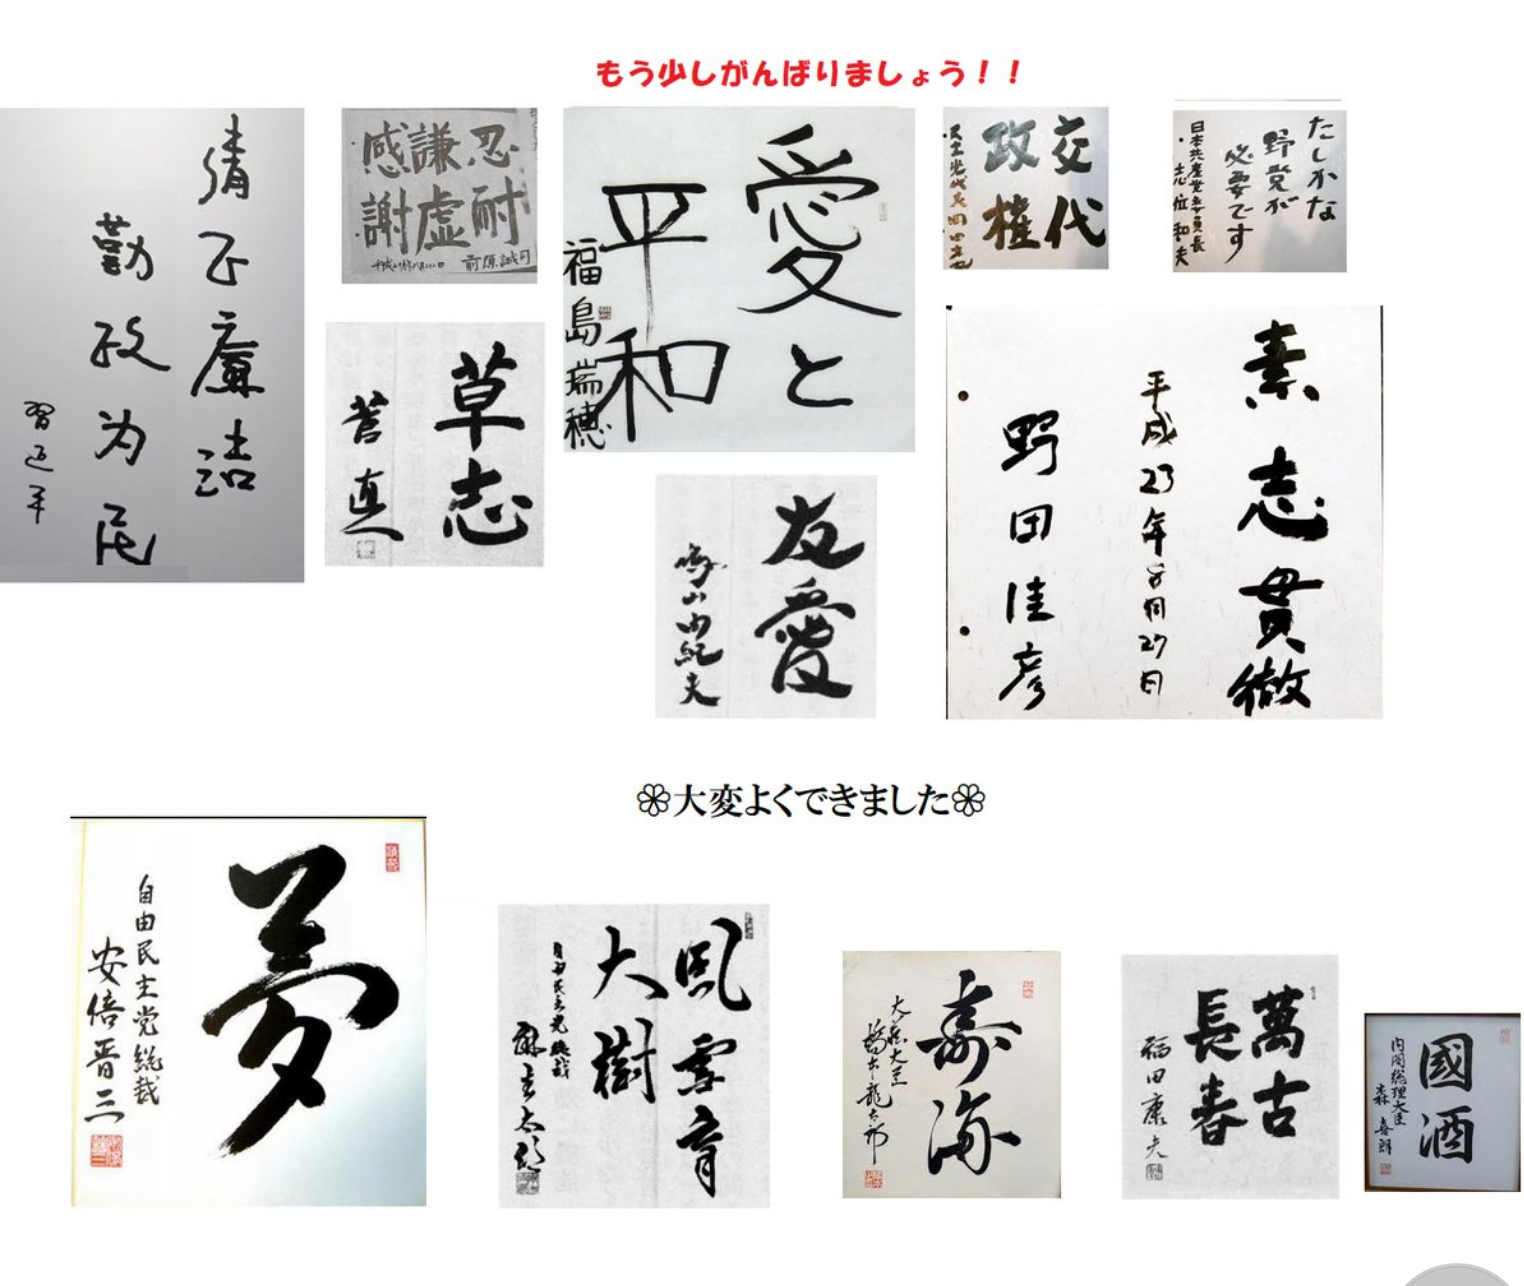 もう少しがんばりましょう！！
清正廉洁
勤政为民
习近平
忍耐
謙虚
感謝
前原誠司
愛と
平和
福島瑞穂
交代
政権
たしかな
野党が
必要です
日本共産党委員長
志位和夫
草志
菅直人
友愛
鳩山由紀夫
素志貫徹
平成23年8月27日
野田佳彦
❀大変よくできました❀
夢
自由民主党総裁
安倍晋三
風雪育
大樹
自由民主党総裁
麻生太郎
寿海
大蔵大臣
橋本龍太郎
萬古
長春
福田康夫
國酒
内閣総理大臣
森喜朗